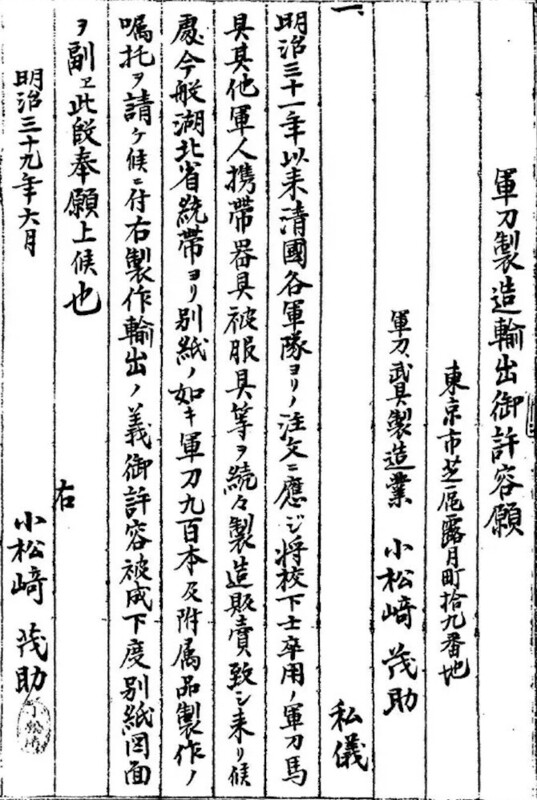 軍刀製造輸出御許容願
東京市芝區露月町拾九番地
軍刀、武具製造業 小松﨑茂助
私儀
一、
明治三十一年以来清國各軍隊ヨリノ注文ニ應ジ将校下士卒用ノ軍刀馬
具其他軍人携帯器具被服具等ヲ続々製造販賣致シ来リ候
處今般湖北省統帯ヨリ別紙ノ如キ軍刀九百本及附属品製作ノ
嘱托ヲ請ケ候ニ付右製作輸出ノ義御許容被成下度別紙図面
ヲ副ヱ此段奉願上候也
右
明治三十九年六月
小松﨑茂助